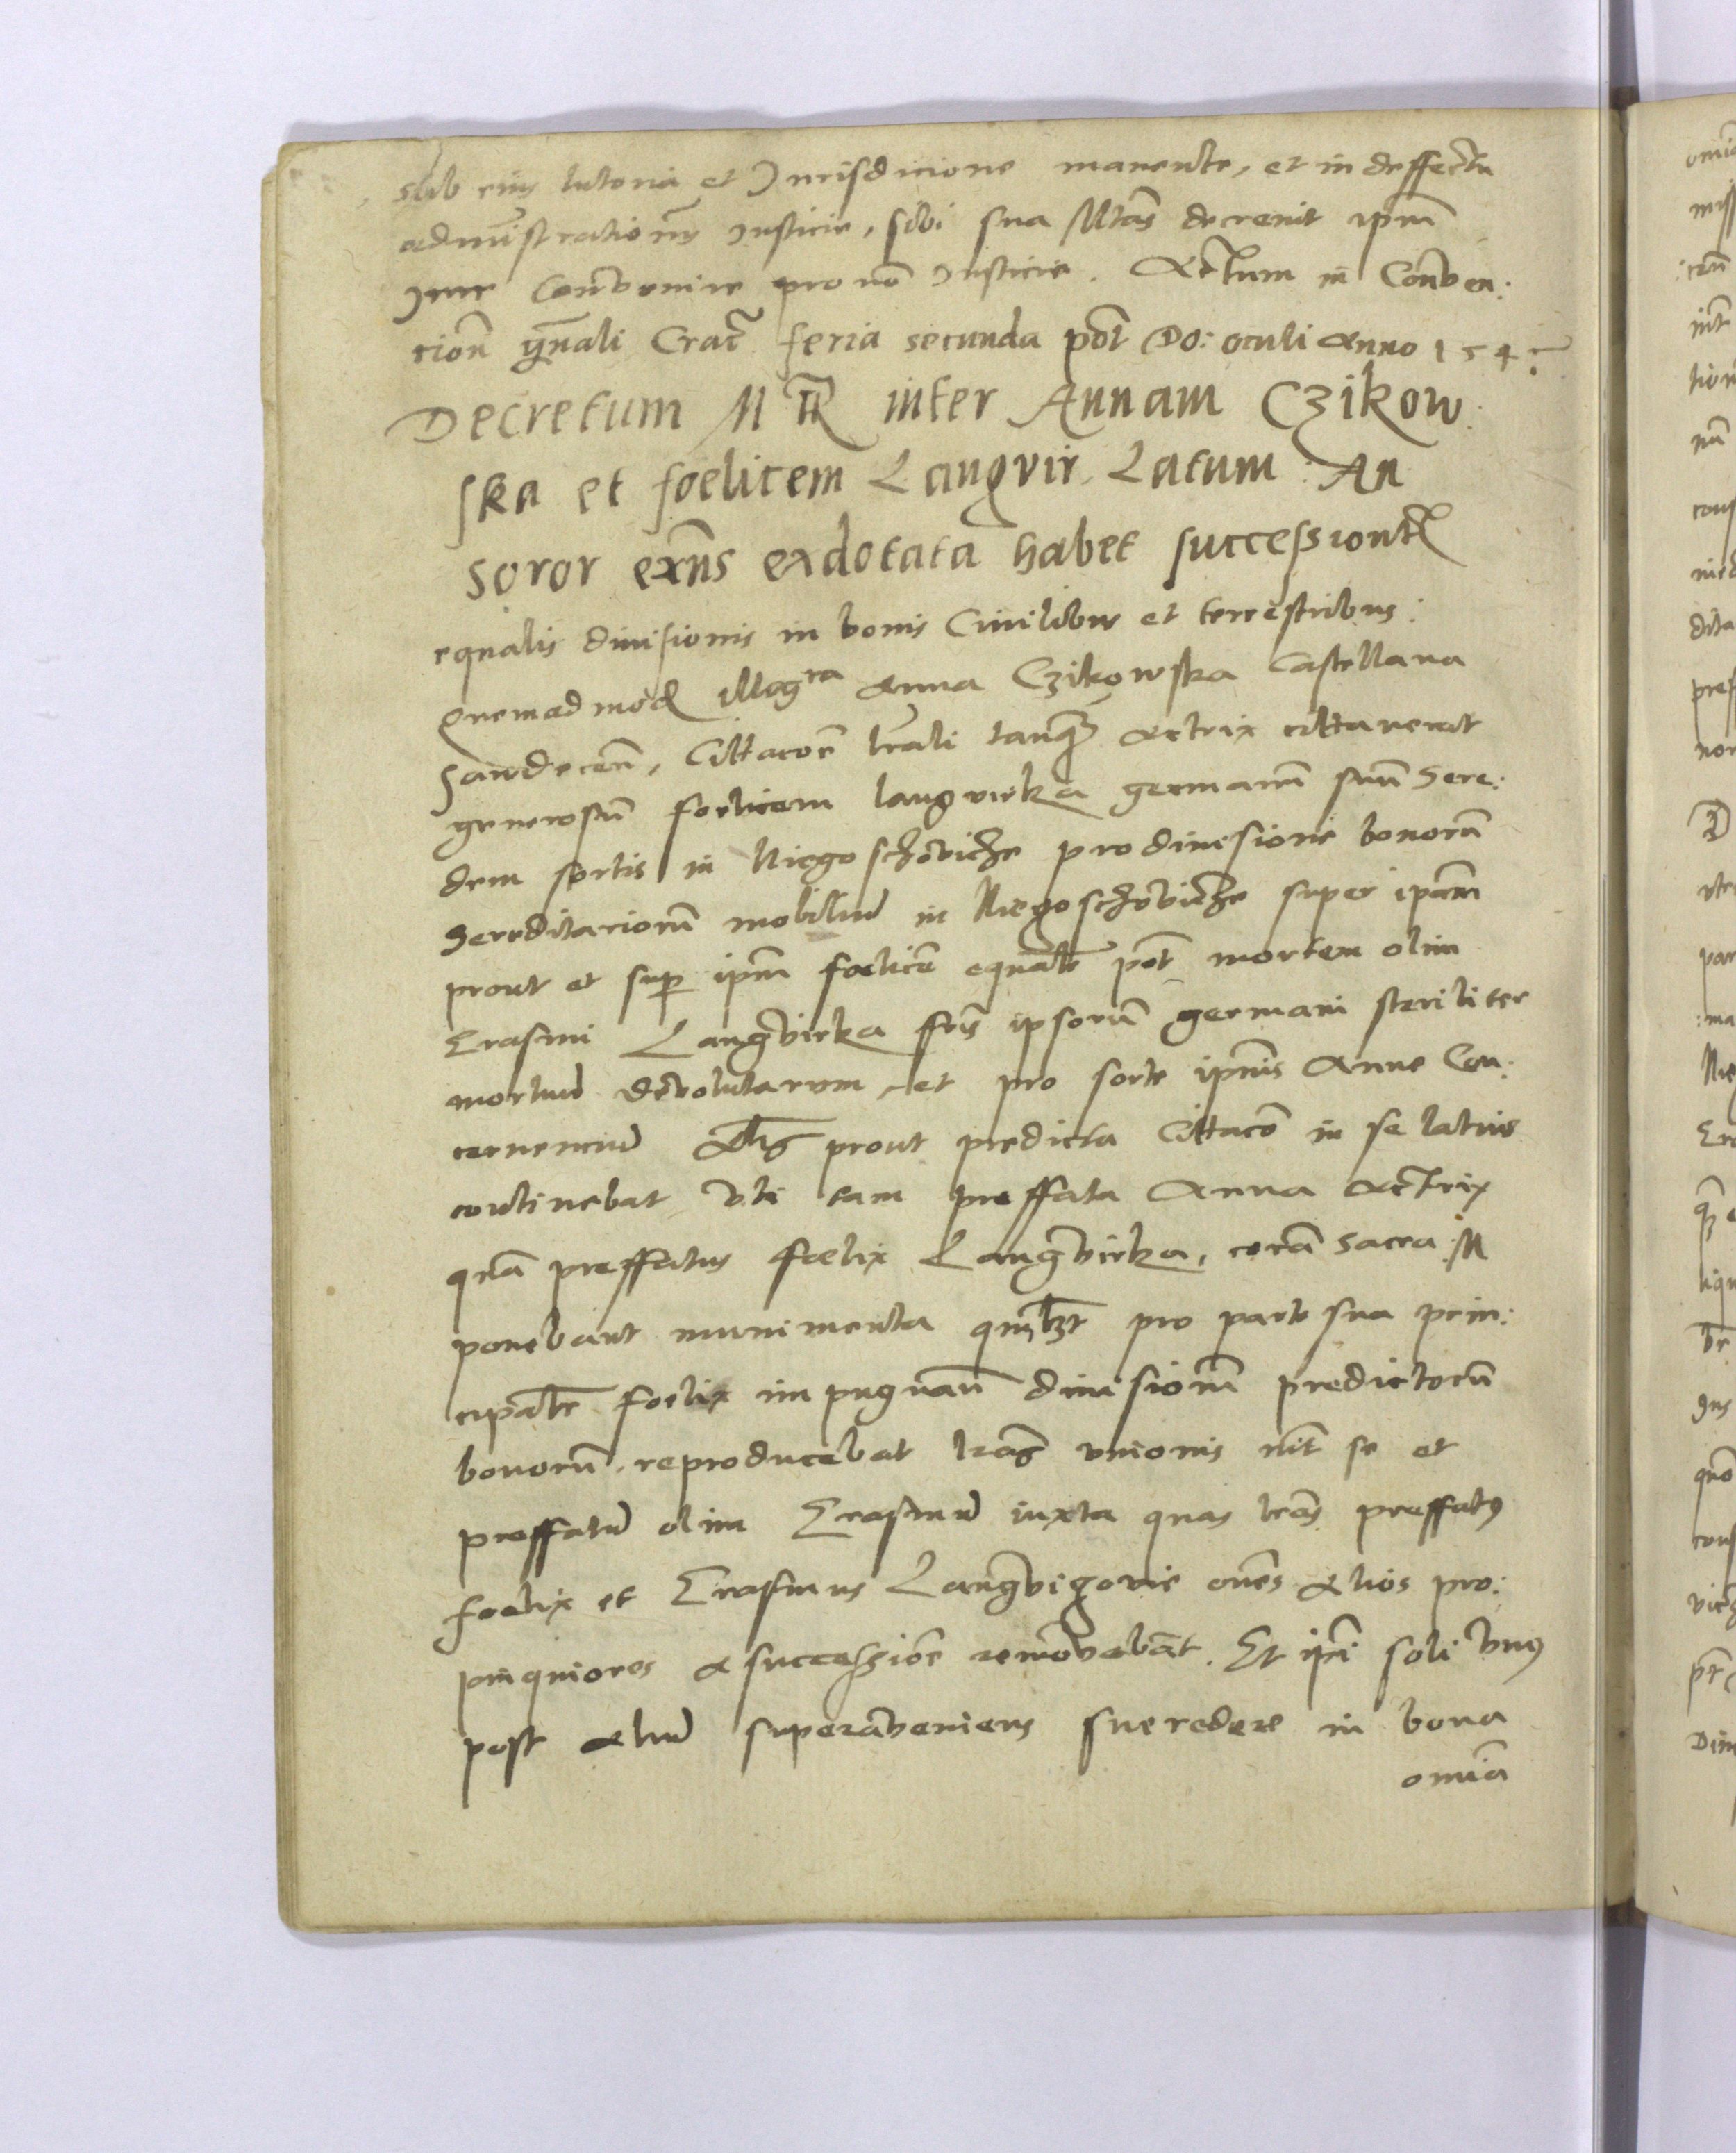 sub eius tutoria et Jurisdicione manente, et in deffectu
administrationis Justicie, sibi sua Mtas decrenit ipm
Jure Convenire pro no Justicie. Actum in Conven:
cion gnali Crac feria secunda post Do: oculi Anno 154
Decretum M R inter Annam Czikow:
ska et foelicem Langvir. Latum: An
soror exns exdotata habet succession
equalis divisionis in bonis Civilibus et terrestribus:
Quemadmod Anna Czikowska Castellana
Sandecen, Cittacoe lrali tanq Actrix cittaverat
generosum foelicem langvirka germanu suu here:
dem sortis in Niegoschoviche pro divisione bonoru
hereditarioru mobiliu in Niegoschoviche super ipam
prout et sup ipm foelice equalr post mortem olim
Erasmi Langvirka fris ipsoru germani steriliter
mortui devolutarum, et pro sorte ipius Anne Con:
cernenciu prout predicta Cittaco in se latius
continebat Vbi tam preffata Anna Actrix
qua preffatus foelix Langvirka, cora sacra M
ponebant munimenta pro parte sua prin:
cipalr foelix impugnan divisionem predictoru
bonoru, reproducebat lras vnionis int se et
preffatu olim Erasmu iuxta quas lras preffatus
foelix et Erasmus Langvigovie oes alios pro:
pinquiores a successioe removebat. Et ipi soli vnus
post aliu superaveniens succedere in bona
omia